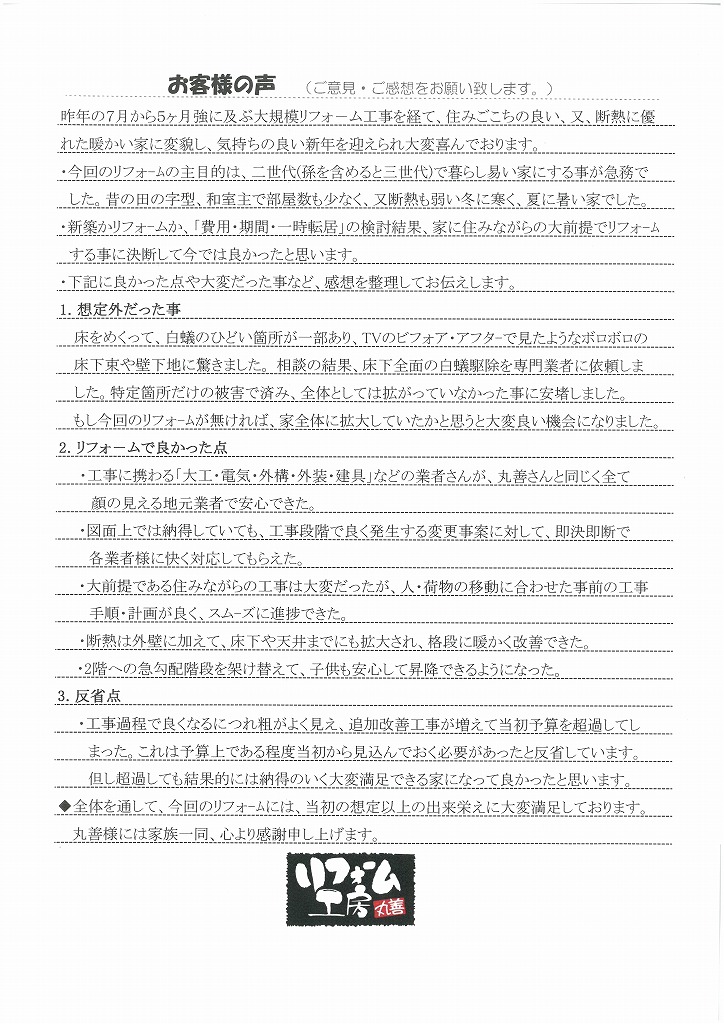 お客様の声 （ご意見・ご感想をお願い致します。）
昨年の7月から5ヶ月強に及ぶ大規模リフォーム工事を経て、住みごこちの良い、又、断熱に優
れた暖かい家に変貌し、気持ちの良い新年を迎えられ大変喜んでおります。
・今回のリフォームの主目的は、二世代(孫を含めると三世代)で暮らし易い家にする事が急務で
した。昔の田の字型、和室主で部屋数も少なく、又断熱も弱い冬に寒く、夏に暑い家でした。
・新築かリフォームか、「費用・期間・一時転居」の検討結果、家に住みながらの大前提でリフォーム
する事に決断して今では良かったと思います。
・下記に良かった点や大変だった事など、感想を整理してお伝えします。
1. 想定外だった事
床をめくって、白蟻のひどい箇所が一部あり、TVのビフォア・アフターで見たようなボロボロの
床下束や壁下地に驚きました。 相談の結果、床下全面の白蟻駆除を専門業者に依頼しま
した。特定箇所だけの被害で済み、全体としては拡がっていなかった事に安堵しました。
もし今回のリフォームが無ければ、家全体に拡大していたかと思うと大変良い機会になりました。
2. リフォームで良かった点
・工事に携わる「大工・電気・外構・外装・建具」などの業者さんが、丸善さんと同じく全て
顔の見える地元業者で安心できた。
・図面上では納得していても、工事段階で良く発生する変更事案に対して、即決即断で
各業者様に快く対応してもらえた。
・大前提である住みながらの工事は大変だったが、人・荷物の移動に合わせた事前の工事
手順・計画が良く、スムーズに進捗できた。
・断熱は外壁に加えて、床下や天井までにも拡大され、格段に暖かく改善できた。
・2階への急勾配階段を架け替えて、子供も安心して昇降できるようになった。
3. 反省点
・工事過程で良くなるにつれ粗がよく見え、追加改善工事が増えて当初予算を超過してし
まった。これは予算上である程度当初から見込んでおく必要があったと反省しています。
但し超過しても結果的には納得のいく大変満足できる家になって良かったと思います。
◆全体を通して、今回のリフォームには、当初の想定以上の出来栄えに大変満足しております。
丸善様には家族一同、心より感謝申し上げます。
リフォーム
工房 丸善